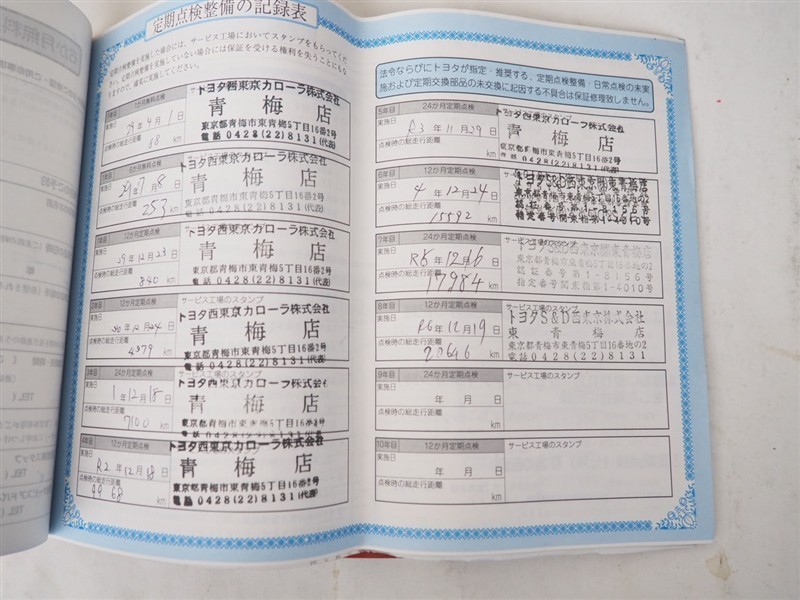 定期点検整備の記録表
定期点検整備を実施した場合には、サービス工場においてスタンプをもらってくだ
さい。定期点検整備を実施していない場合には保証を受ける権利を失うことにもな
りますので、確実に実施してください。
1か月無料点検
実施日 29年4月1日
点検時の総走行距離
88 km
トヨタ西東京カローラ株式会社
青梅店
東京都青梅市東青梅5丁目16番2号
電話 0428(22)8131(代表)
6か月無料点検
実施日 29年7月8日
点検時の総走行距離
253 km
トヨタ西東京カローラ株式会社
青梅店
東京都青梅市東青梅5丁目16番2号
電話 0428(22)8131(代表)
12か月定期点検
実施日 29年12月23日
点検時の総走行距離
840 km
トヨタ西東京カローラ株式会社
青梅店
東京都青梅市東青梅5丁目16番2号
電話 0428(22)8131(代表)
2年目 12か月定期点検 サービス工場のスタンプ
実施日 30年12月24日
点検時の総走行距離
4379 km
トヨタ西東京カローラ株式会社
青梅店
東京都青梅市東青梅5丁目16番2号
電話 0428(22)8131(代表)
3年目 24か月定期点検 サービス工場のスタンプ
実施日 1年12月18日
点検時の総走行距離
7100 km
トヨタ西東京カローラ株式会社
青梅店
東京都青梅市東青梅5丁目16番2号
電話 0428(22)8131(代表)
4年目 12か月定期点検
実施日 R2年12月18日
点検時の総走行距離
9968 km
トヨタ西東京カローラ株式会社
青梅店
東京都青梅市東青梅5丁目16番2号
電話 0428(22)8131(代表)
法令ならびにトヨタが指定・推奨する、定期点検整備・日常点検の未実
施および定期交換部品の未交換に起因する不具合は保証修理致しません。
5年目 24か月定期点検
実施日 R3年11月29日
点検時の総走行距離
km
トヨタ西東京カローラ株式会社
青梅店
東京都青梅市東青梅5丁目16番2号
電話 0428(22)8131(代表)
6年目 12か月定期点検
実施日 4年12月24日
点検時の総走行距離
15592 km
認証番号第1-8156号
指定番号関東指第1-4010号
7年目 24か月定期点検 サービス工場のスタンプ
実施日 R5年12月16日
点検時の総走行距離
17984 km
認証番号第1-8156号
指定番号関東指第1-4010号
8年目 12か月定期点検 サービス工場のスタンプ
実施日 R6年12月19日
点検時の総走行距離
20646 km
トヨタS&D西東京株式会社
東青梅店
東京都青梅市東青梅5丁目16番地の2
電話 0428(22)8131
9年目 24か月定期点検 サービス工場のスタンプ
実施日 年 月 日
点検時の総走行距離
km
10年目 12か月定期点検 サービス工場のスタンプ
実施日 年 月 日
点検時の総走行距離
km